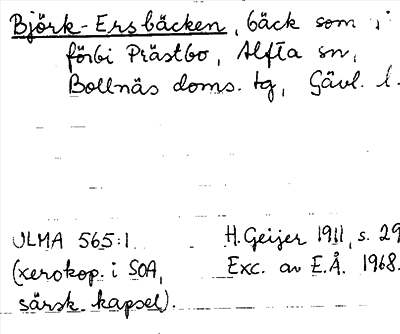 Björk-Ersbäcken, bäck som i
förbi Prästbo, Alfta sn,
Bollnäs doms. tg, Gävl. l.
ULMA 565:1 H. Geijer 1911, s. 29
(xerokop. i SOA, Exc. av E.Å. 1968.
särsk. kapsel).